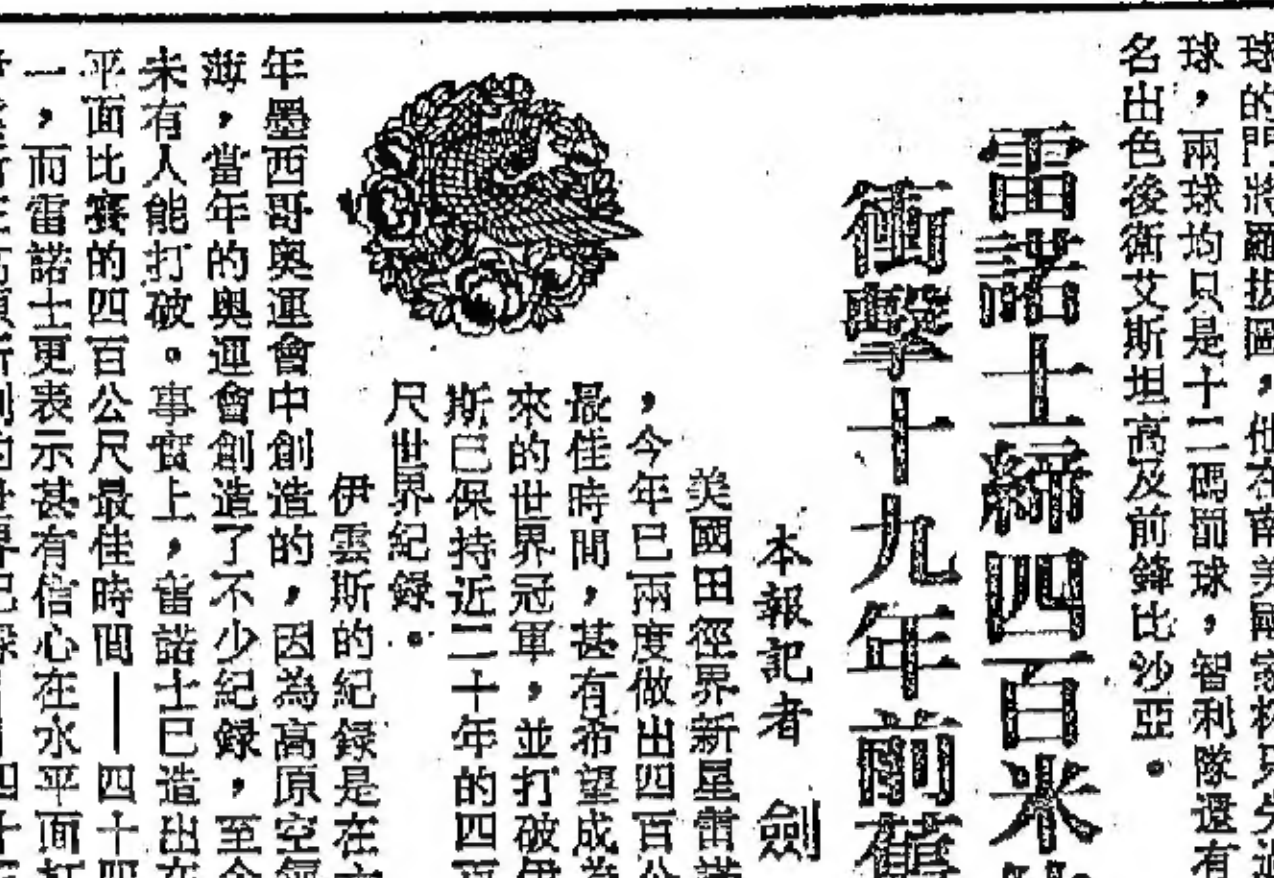 球的門將羅拔圖，他在南美國家杯只失過
球，兩球均只是十二碼罰球，智利隊還有
名出色後衛艾斯坦高及前鋒比沙亞。
雷諾士締四百米
衝擊十九年前舊
本報記者 劍
美國田徑界新星雷諾
，今年已兩度做出四百公
最佳時間，甚有希望成為
來的世界冠軍，並打破伊
斯已保持近二十年的四百
尺世界紀錄。
伊雲斯的紀錄是在
年墨西哥奧運會中創造的，因為高原空氣
薄，當年的奧運會創造了不少紀錄，至今
未有人能打破。事實上，雷諾士已造出在
平面比賽的四百公尺最佳時間——四十四
一，而雷諾士更表示甚有信心在水平面打